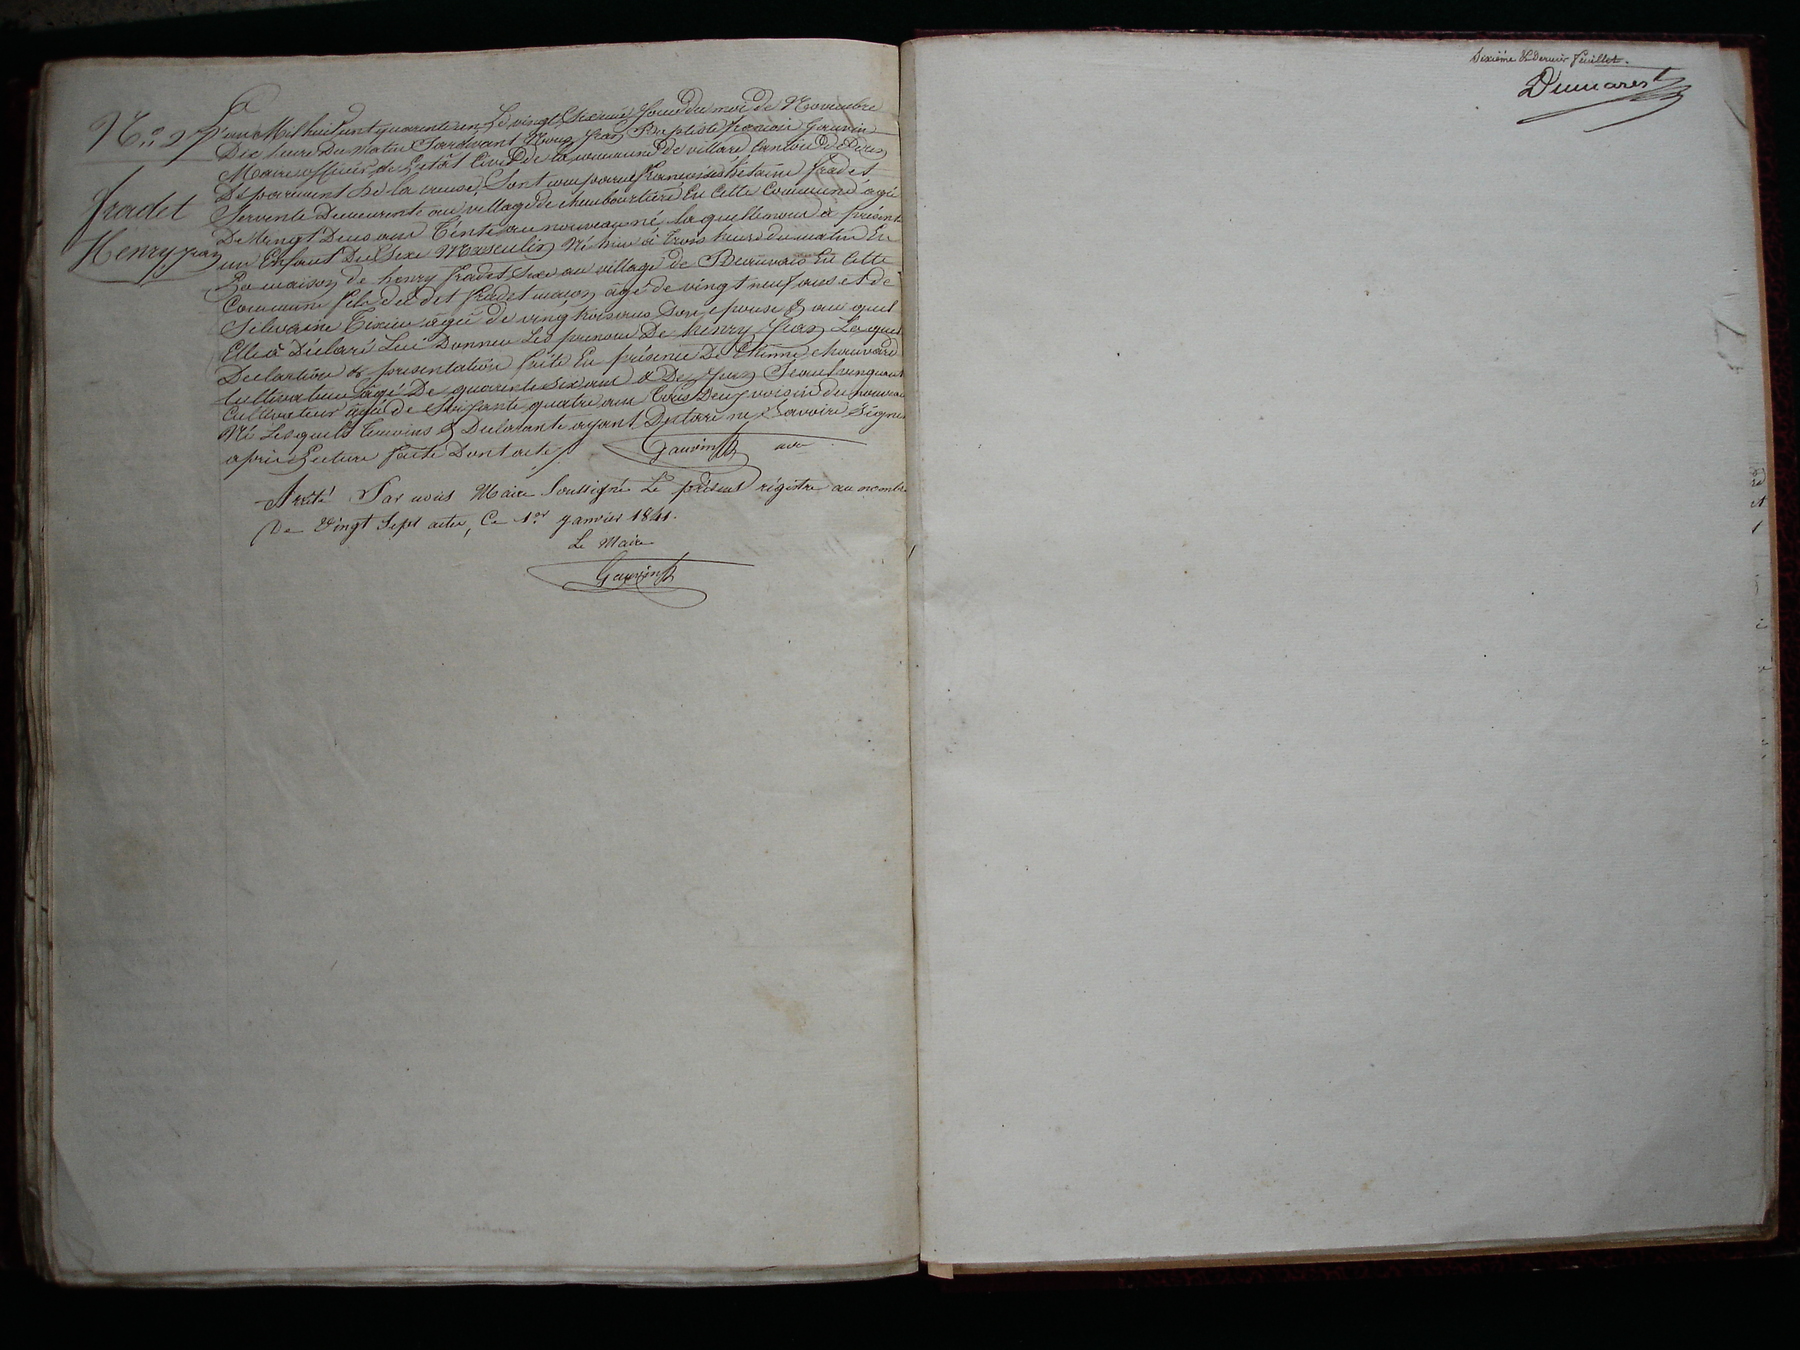 N.o 27
fradet
Henry jean
L'an Mil huit cent quarante un Le vingt Sixieme Jour du moi de Novembre
Dix heure Du Matin Pardevant Nous Jean Baptiste francois Gauvin
Maire officier de L'etat Civil de la commune de villard Canton de Dun
Département De la creuse, Sont comparue francoise fradet
Servente Demeurente au village de En Cette Commune agée
De Vingt Deux ans Tente au nouveau né laquelle nous à présenté
un Enfant Du Sexe Masculin Né hier à trois heure du matin En
La maison de henry fradet Sixe au village de Beauvais En Cette
Commune fils du dit fradet maçon âgé de vingt neuf ans et de
Silvaine Tixier âgée de vingt trois ans Son epouse & au quel
Elle à Déclaré Lui Donner Les prenom De henry jean Les quel
Declartion & presentation faite En présence De Etienne
Cultivateur âgé De quarente Six ans & De Jean
Cultivateur âgé de Soixante quatre ans tous Deux voisin du nouveau
Né Lesquels temoins & Declarante ayant Declaré ne Savoire Signer
après Lecture faite Dont acte
Gauvin
Arrêté Par nous Maire Soussigné Le présent régistre au nombre
De Vingt Sept actes, Ce 1.er janvier 1841.
Le Maire
Gauvin
Sixième & Dernier feuillet.
Dumarest